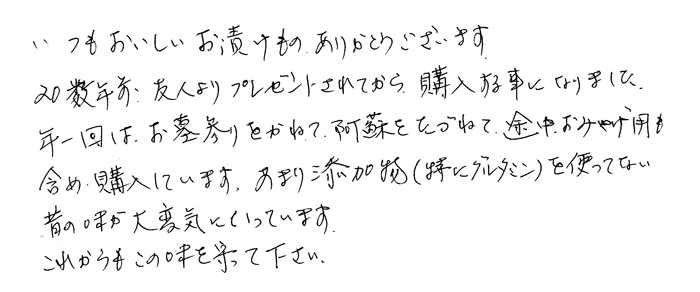 いつもおいしいお漬けもの ありがとうございます
20数年前、友人よりプレゼントされてから、購入する事になりました。
年一回は、お墓参りをかねて、阿蘇をたづねて、途中、おみやげ用も
含め、購入しています。あまり添加物(特にグルタミン)を使ってない
昔の味が大変気にいっています。
これからもこの味を守って下さい。